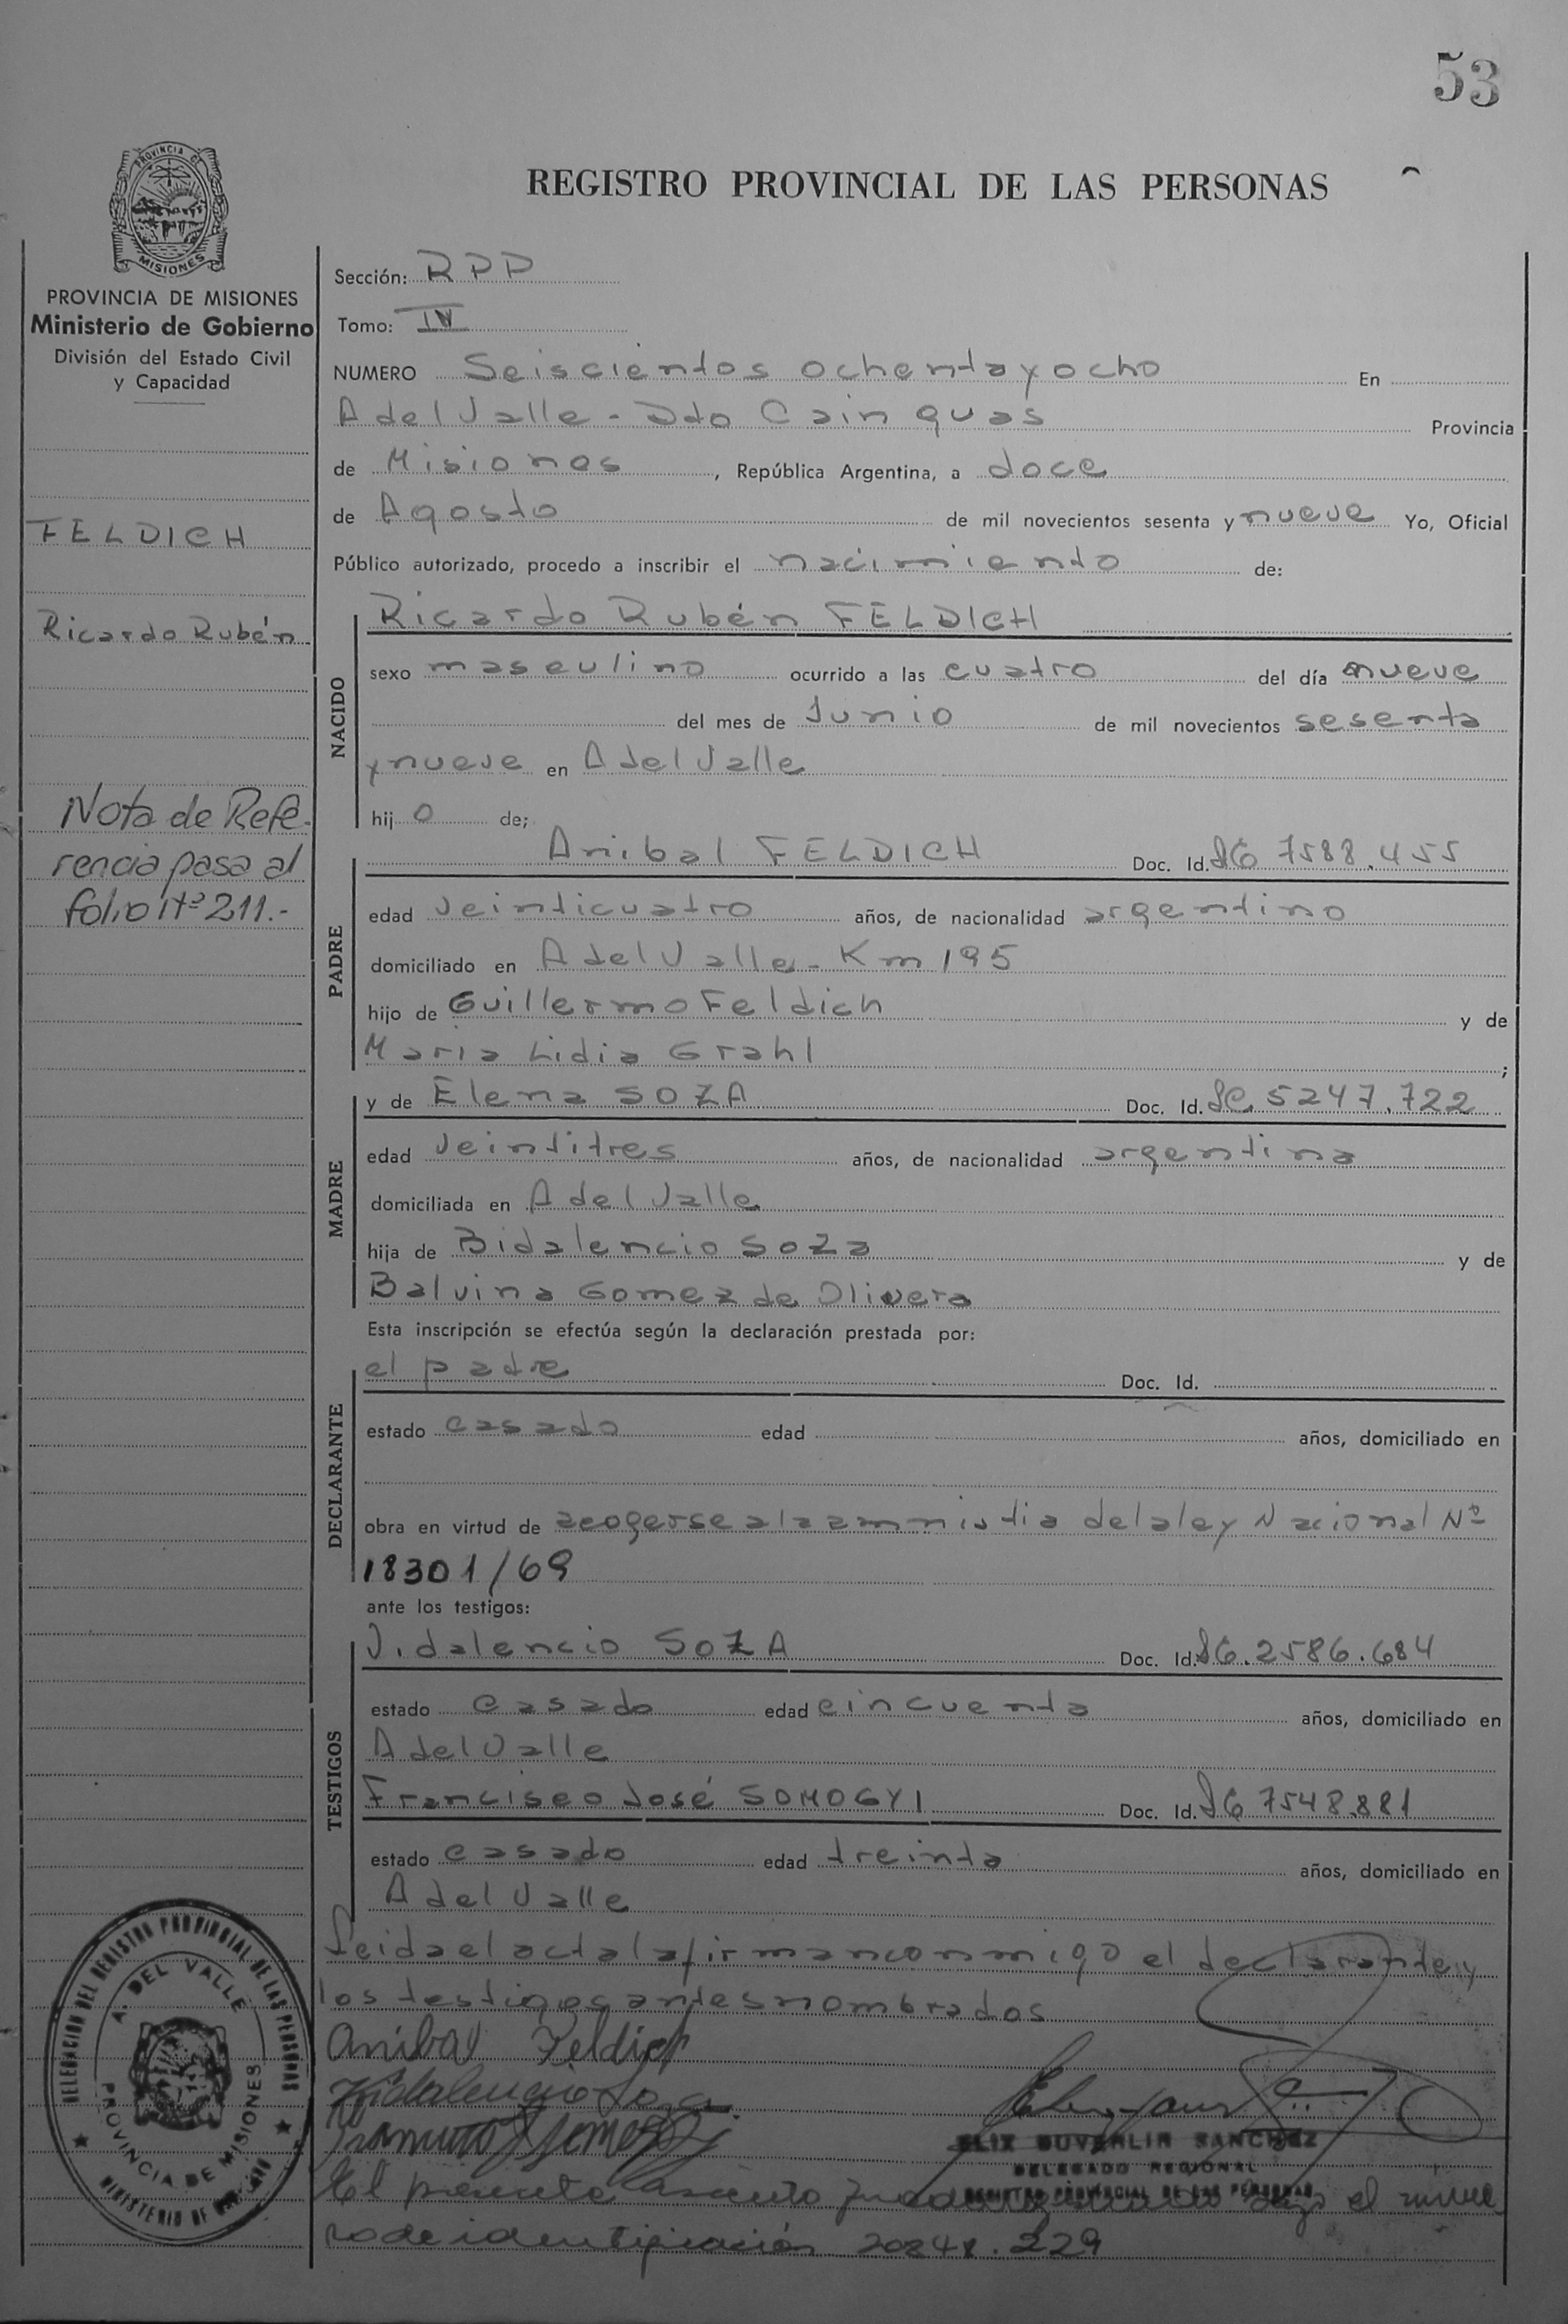 53
PROVINCIA DE
MISIONES
REGISTRO PROVINCIAL DE LAS PERSONAS
PROVINCIA DE MISIONES
Ministerio de Gobierno
División del Estado Civil
y Capacidad
FELDICH
Ricardo Rubén
Nota de Refe-
rencia pasa al
folio Nº 211.-
Sección: RPP
Tomo: IV
NUMERO Seiscientos ochenta y ocho En
A del Valle - Dto Cain guas Provincia
de Misiones, República Argentina, a doce
de Agosto de mil novecientos sesenta y nueve Yo, Oficial
Público autorizado, procedo a inscribir el nacimiento de:
NACIDO
Ricardo Rubén FELDICH
sexo masculino ocurrido a las cuatro del día nueve
del mes de Junio de mil novecientos sesenta
y nueve en A del Valle
hij o de;
PADRE
Anibal FELDICH Doc. Id. 7588.455
edad veinticuatro años, de nacionalidad argentino
domiciliado en A del Valle - Km 195
hijo de Guillermo Feldich y de
Maria Lidia Grahl ;
MADRE
y de Elena SOZA Doc. Id. 5247.722
edad veintitres años, de nacionalidad argentina
domiciliada en A del Valle
hija de Bidalencio Soza y de
Balvina Gomez de Olivera
Esta inscripción se efectúa según la declaración prestada por:
DECLARANTE
el padre Doc. Id.
estado casado edad años, domiciliado en
obra en virtud de acogerse a la amnistia de la ley Nacional Nº
18301/69
ante los testigos:
TESTIGOS
Vidalencio SOZA Doc. Id. 2586.684
estado casado edad cincuenta años, domiciliado en
A del Valle
Francisco José SOMOGYI Doc. Id. 7548.881
estado casado edad treinta años, domiciliado en
A del Valle
Leida el acta la firman conmigo el declarante y
los testigos antes nombrados
Anibal Feldich
Vidalencio Soza
DELEGACION DEL REGISTRO PROVINCIAL DE LAS PERSONAS
A. DEL VALLE
PROVINCIA DE MISIONES
MINISTERIO DE
SANCHEZ
DELEGADO REGIONAL
REGISTRO PROVINCIAL DE LAS PERSONAS
El presente asiento bajo el nume
ro de identificación 20848.229